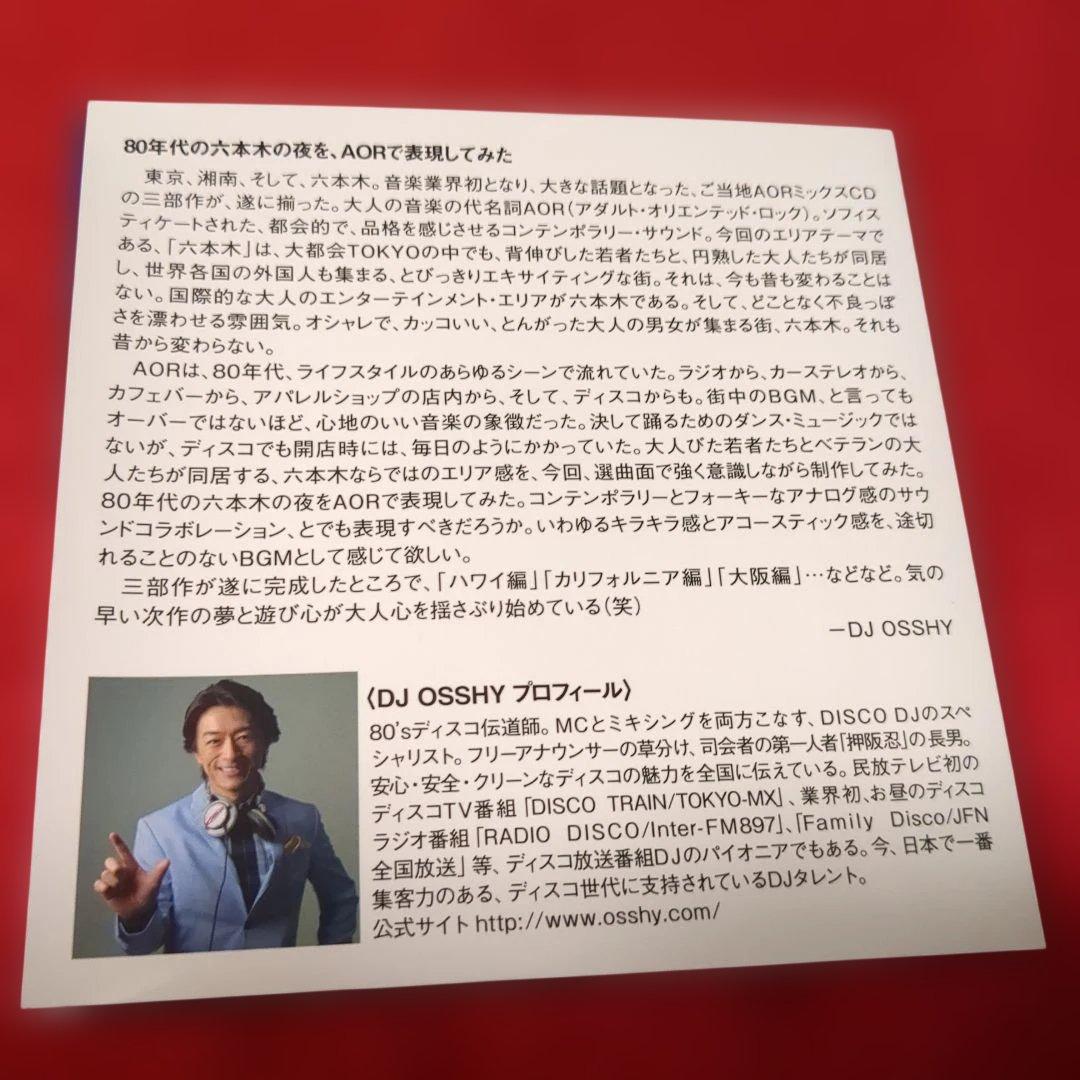 80年代の六本木の夜を、AORで表現してみた
東京、湘南、そして、六本木。音楽業界初となり、大きな話題となった、ご当地AORミックスCD
の三部作が、遂に揃った。大人の音楽の代名詞AOR(アダルト・オリエンテッド・ロック)。ソフィス
ティケートされた、都会的で、品格を感じさせるコンテンポラリー・サウンド。今回のエリアテーマで
ある、「六本木」は、大都会TOKYOの中でも、背伸びした若者たちと、円熟した大人たちが同居
し、世界各国の外国人も集まる、とびっきりエキサイティングな街。それは、今も昔も変わることは
ない。国際的な大人のエンターテインメント・エリアが六本木である。そして、どことなく不良っぽ
さを漂わせる雰囲気。オシャレで、カッコいい、とんがった大人の男女が集まる街、六本木。それも
昔から変わらない。
AORは、80年代、ライフスタイルのあらゆるシーンで流れていた。ラジオから、カーステレオから、
カフェバーから、アパレルショップの店内から、そして、ディスコからも。街中のBGM、と言っても
オーバーではないほど、心地のいい音楽の象徴だった。決して踊るためのダンス・ミュージックでは
ないが、ディスコでも開店時には、毎日のようにかかっていた。大人びた若者たちとベテランの大
人たちが同居する、六本木ならではのエリア感を、今回、選曲面で強く意識しながら制作してみた。
80年代の六本木の夜をAORで表現してみた。コンテンポラリーとフォーキーなアナログ感のサウ
ンドコラボレーション、とでも表現すべきだろうか。いわゆるキラキラ感とアコースティック感を、途切
れることのないBGMとして感じて欲しい。
三部作が遂に完成したところで、「ハワイ編」「カリフォルニア編」「大阪編」…などなど。気の
早い次作の夢と遊び心が大人心を揺さぶり始めている(笑)
−DJ OSSHY
〈DJ OSSHY プロフィール〉
80'sディスコ伝道師。MCとミキシングを両方こなす、DISCO DJのスペ
シャリスト。フリーアナウンサーの草分け、司会者の第一人者「押阪忍」の長男。
安心・安全・クリーンなディスコの魅力を全国に伝えている。民放テレビ初の
ディスコTV番組「DISCO TRAIN/TOKYO-MX」、業界初、お昼のディスコ
ラジオ番組「RADIO DISCO/Inter-FM897」、「Family Disco/JFN
全国放送」等、ディスコ放送番組DJのパイオニアでもある。今、日本で一番
集客力のある、ディスコ世代に支持されているDJタレント。
公式サイト http://www.osshy.com/